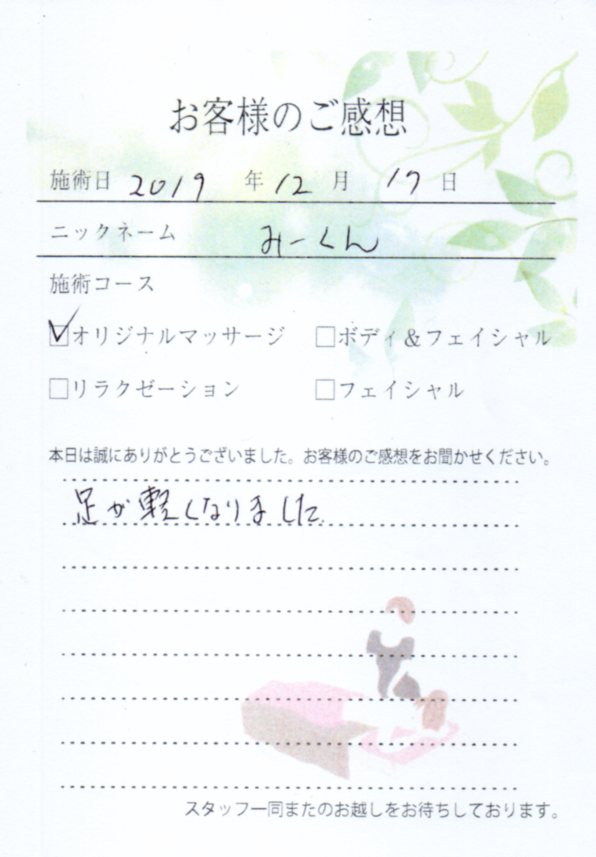 お客様のご感想
施術日 2019 年 12 月 17 日
ニックネーム みーくん
施術コース
☑オリジナルマッサージ □ボディ&フェイシャル
□リラクゼーション □フェイシャル
本日は誠にありがとうございました。お客様のご感想をお聞かせください。
足が軽くなりました
スタッフ一同またのお越しをお待ちしております。